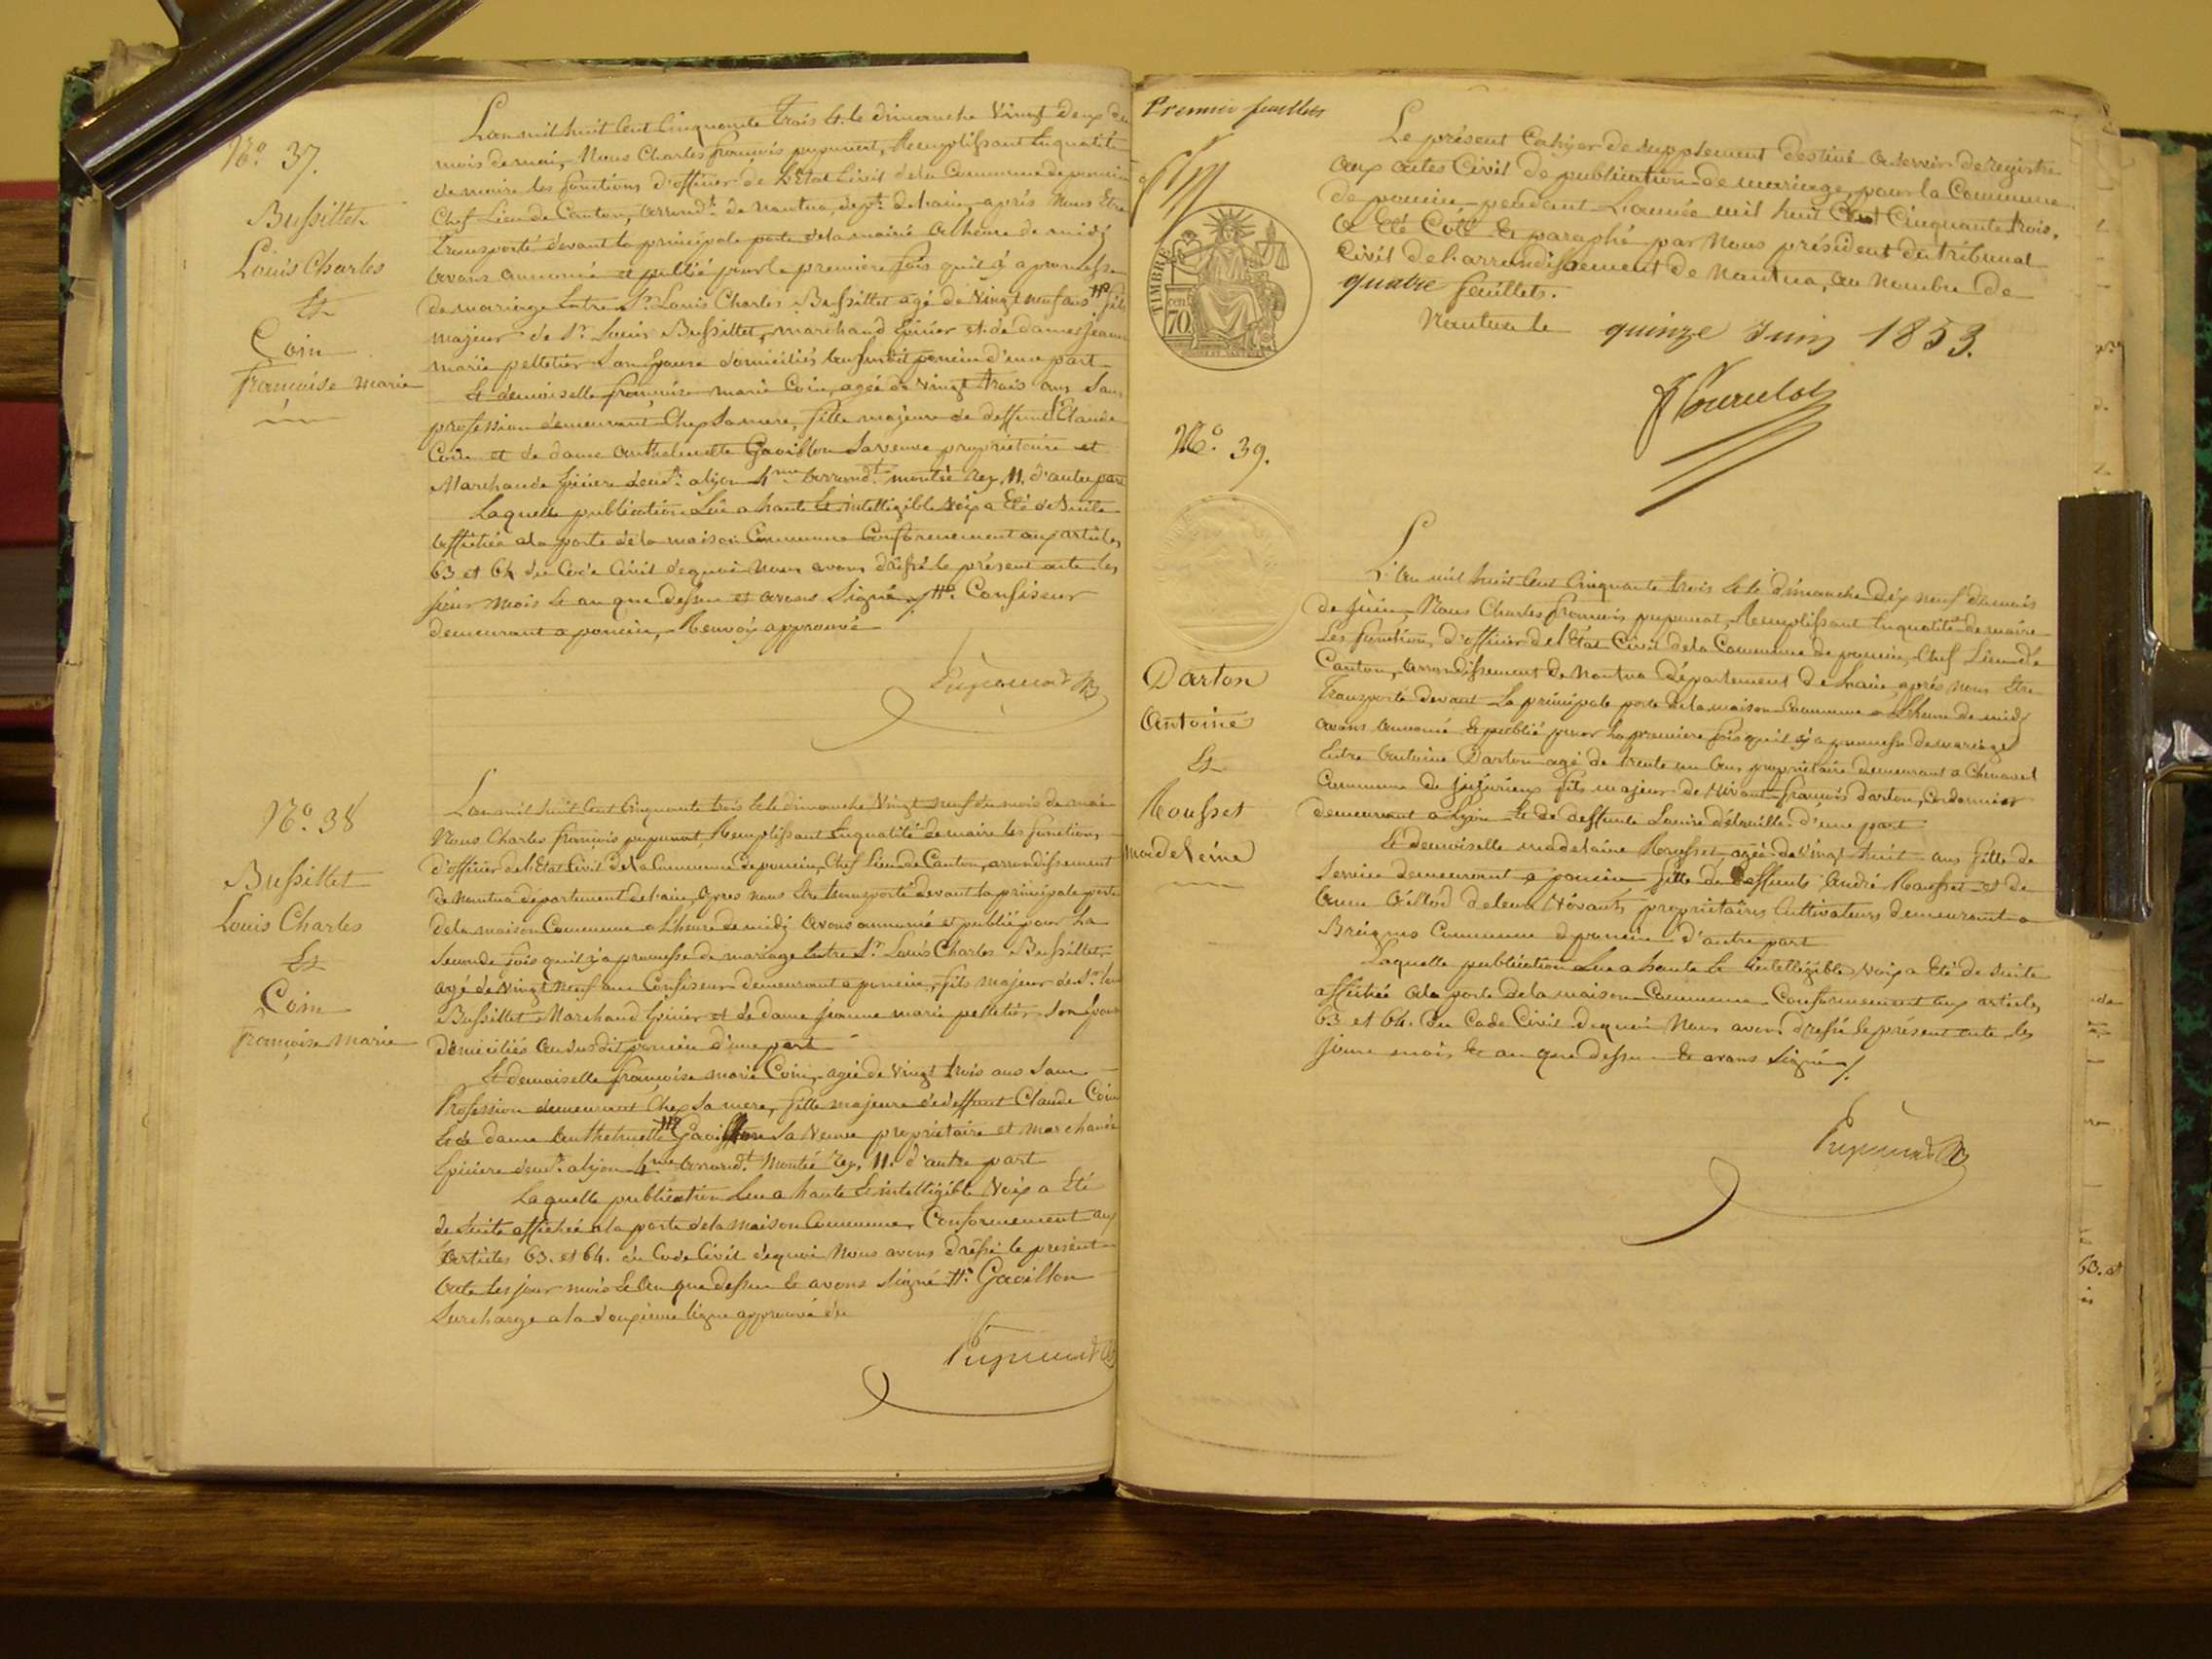 N.o 37.
Bussillet
Louis Charles
Et
Coin
françoise marie
L'an mil huit Cent Cinquante trois Et le dimanche Vingt deux du
mois de mai, Nous Charles françois pupunat, Remplissant En qualité
de maire les fonctions d'officier de L'Etat Civil de la Commune de poncin
Chef Lieu de Canton, Arrondt. de nantua, dept. de l'ain, après Nous Etre
transporté devant la principale porte de la mairie a Lheure de midi
avons annoncé et publié pour la première fois qu'il y a promesse
de mariage Entre Sr. Louis Charles Bussillet agé de Vingt neuf ans # fils
majeur de Sr. Louis Bussillet, marchand Epicier et de dame jeanne
marie pelletier Son Epouse domiciliés au susdit poncin d'une part
Et demoiselle françoise marie Coin, agée de Vingt trois ans Sans
profession demeurant Chez Sa mere, fille majeure de deffunt Sr. Claude
Coin et de dame anthelmette Gavillon Sa veuve propriétaire et
Marchande Epiciere demt. a lyon 4me. Arrondt. montée Rey, 11. d'autre part
Laquelle publication Lue a haute Et intelligible Voix a Eté de Suite
affichée a la porte de la maison Commune Conformement aux articles
63 et 64 du Code Civil de quoi Nous avons dréssé le présent acte les
jour mois Et an que dessus et avons Signé ./. # Confiseur
demeurant a poncin, Renvoi approuvé
Pupunat
N.o 38
Bussillet
Louis Charles
Et
Coin
françoise marie
L'an mil huit Cent Cinquante trois Et le dimanche Vingt neuf du mois de mai
Nous Charles françois pupunat Remplissant En qualité de maire les fonctions
d'officier de l'Etat Civil de la Commune de poncin, Chef Lieu de Canton, arrondissement
de Nantua département de l'ain, Apres nous Etre transporté devant la principale porte
de la maison Commune a Lheure de midi Avons annoncé et publié pour La
Seconde fois qu'il y a promesse de mariage Entre Sr. Louis Charles Bussillet
agé de Vingt Neuf ans Confiseur demeurant a poncin, fils Majeur de Sr. Louis
Bussillet Marchand Epicier et de dame jeanne marie pelletier Son Epouse
domiciliés au susdit poncin d'une part
Et demoiselle françoise marie Coin, agée de Vingt trois ans Sans
Profession demeurant Chez Sa mere, fille majeure de deffunt Claude Coin
Et de dame Anthelmette # Sa Veuve propriétaire et Marchande
Epiciere demt. a lyon 4me. Arrondt. Montée Rey, 11. d'autre part
Laquelle publication Lue a haute Et intelligible Voix a Eté
de Suite affichée a la porte de la Maison Commune, Conformement aux
Articles 63. et 64. du Code Civil de quoi Nous avons dréssé le présent
Acte les jour mois Et An que dessus Et avons Signé # Gavillon
Surcharge a la douxieme ligne approuvé
Pupunat
Premier feuillet
TIMBRE
70
Le présent Cahyer de supplement destiné a Servir de Registre
aux actes Civil de publication de mariage, pour la Commune
de poncin, pendant L'année mil huit Cent Cinquante trois,
a Eté Coté Et paraphé par Nous président du tribunal
Civil de l'arrondissement de Nantua, au Nombre de
quatre feuillets.
Nantua le quinze Juin 1853.
N.o 39.
Darton
Antoine
Et
Rousset
madeleine
L'an mil huit Cent Cinquante trois Et le dimanche dix neuf du mois
de juin, Nous Charles françois pupunat, Remplissant En qualité de maire
Les fonctions d'officier de l'Etat Civil de la Commune de poncin, Chef Lieu de
Canton, arrondissement de Nantua département de L'ain, après nous Etre
transporté devant La principale porte de la maison Commune a Lheure de midi
avons annoncé Et publié pour La premiere fois qu'il y a promesse de mariage
Entre Antoine Darton agé de trente un Ans propriétaire demeurant a Chenavel
Commune de jujurieux fils majeur de Vivant françois darton, Cordonnier
demeurant a Lyon Et de deffunte Louise d'une part
Et demoiselle madelaine Rousset, agée de Vingt huit ans fille de
Service demeurant a poncin fille de deffunts André Rousset et de
de leurs Vivants propriétaires Cultivateurs demeurant a
Breignes Commune de poncin d'autre part
Laquelle publication Lue a haute Et intelligible Voix a Eté de Suite
affichée a la porte de la maison Commune Conformement aux articles
63 et 64. du Code Civil de quoi Nous avons dressé le présent acte les
jour mois Et an que dessus Et avons Signé ./.
Pupunat